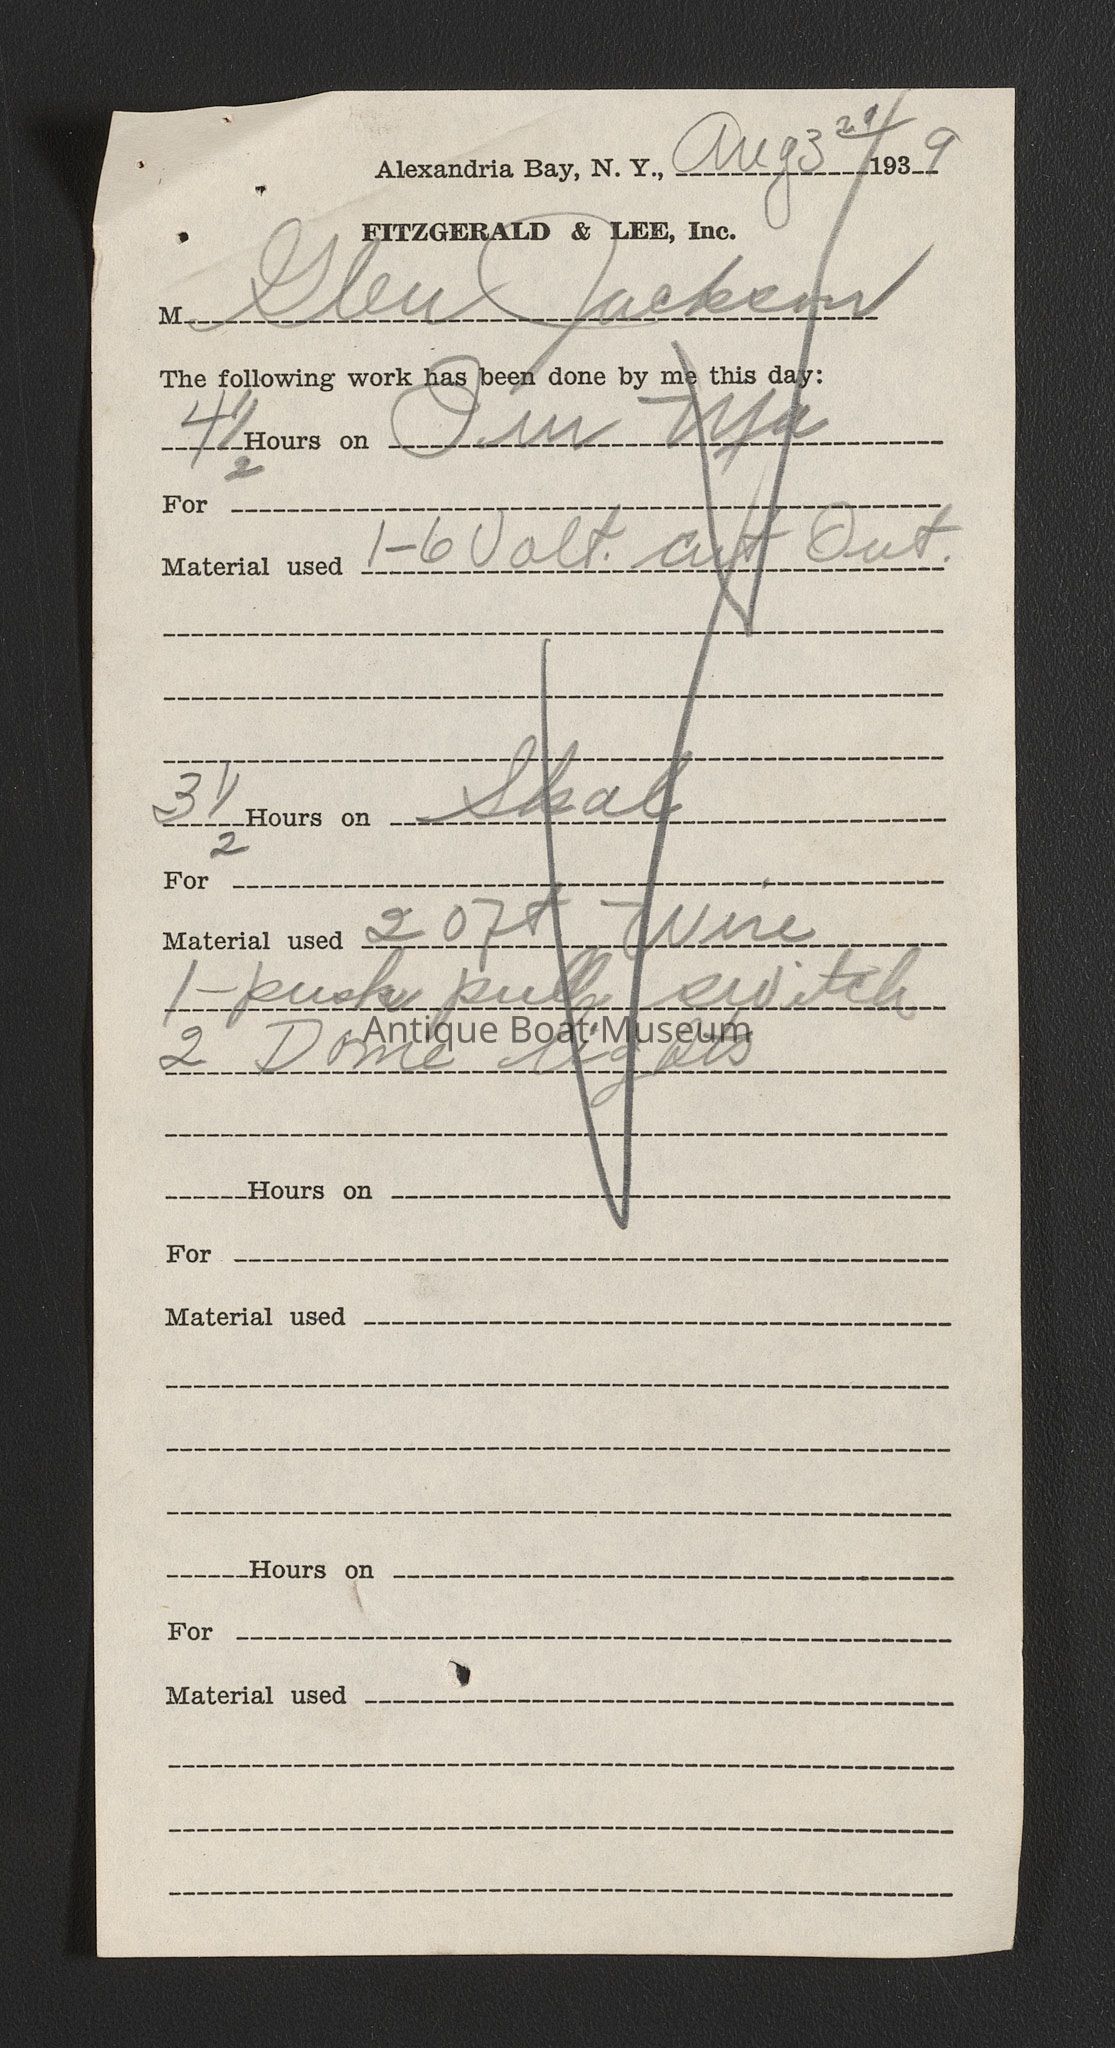 Alexandria Bay, N. Y., Aug 3 1939
FITZGERALD & LEE, Inc.
M Glen Jackson
The following work has been done by me this day:
4 1/2 Hours on
For
Material used 1-6 Volt. cut Out.
3 1/2 Hours on Skal
For
Material used 20 ft Wire
1-push pull switch
Antique Boat Museum
2 Dome lights
Hours on
For
Material used
Hours on
For
Material used